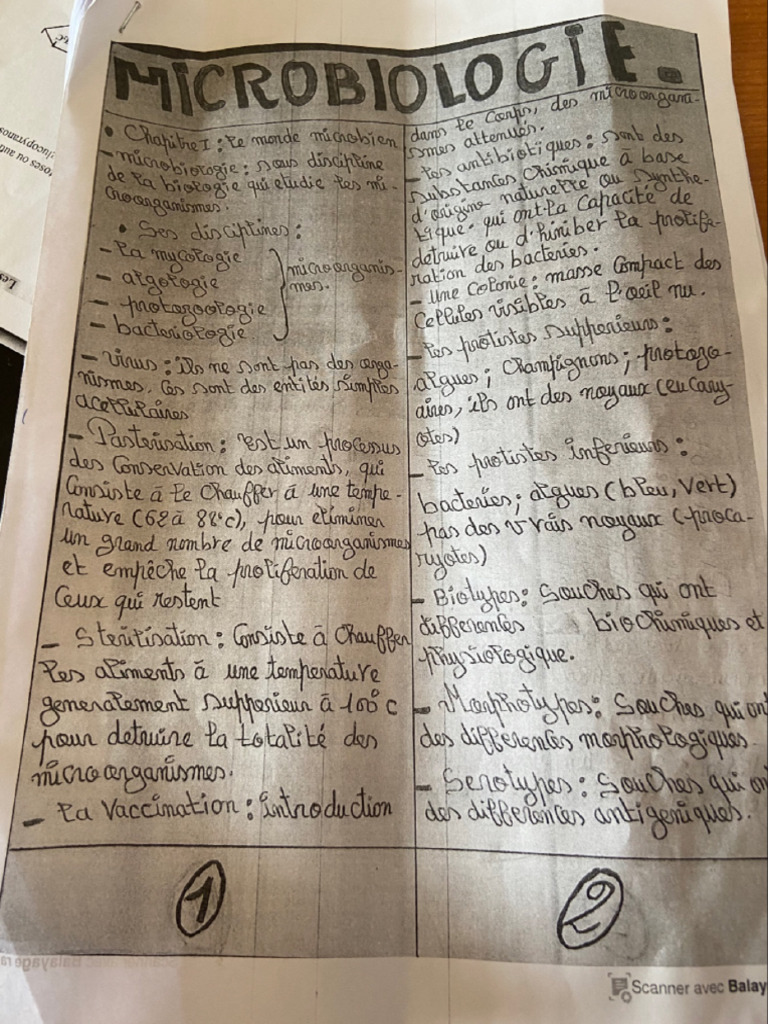 MICROBIOLOGIE.
• Chapitre I : le monde microbien
- microbiologie : sous discipline
de la biologie qui etudie les mi-
croorganismes.
• Ses disciplines :
- la mycologie
- algologie
- protozoologie
- bacteriologie
microorganis-
mes.
- virus : ils ne sont pas des orga-
nismes. Ces sont des entités simples
acellulaires
- Pasterisation : c'est un processus
des Conservation des aliments, qui
Consiste à le Chauffer à une tempe-
rature (62 à 82°c), pour eliminer
un grand nombre de microorganismes
et empêche la proliferation de
Ceux qui restent
- Sterilisation : Consiste à Chauffer
les aliments à une temperature
generalement supperieur à 100°c
pour detruire la totalité des
microorganismes.
- la Vaccination : introduction
1
dans le Corps, des microorgani-
smes attenués.
- les antibiotiques : sont des
substances Chimique à base
d'origine naturelle ou synthe-
tique. qui ont la Capacité de
detruire ou d'huniber la prolife-
ration des bacteries.
- une Colonie : masse Compact des
Cellules visibles à l'oeil nu.
- les protistes supperieurs :
algues ; Champignons ; protozo-
aires, ils ont des noyaux (eucary-
otes)
- les protistes inferieurs :
bacteries ; algues (bleu, Vert)
pas des vrais noyaux (proca-
ryotes)
- Biotypes : Souches qui ont
differences biochimiques et
physiologique.
- Morphotypes : Souches qui ont
des differences morphologiques
- Serotypes : Souches qui ont
des differences antigeniques.
2
Scanner avec Balay